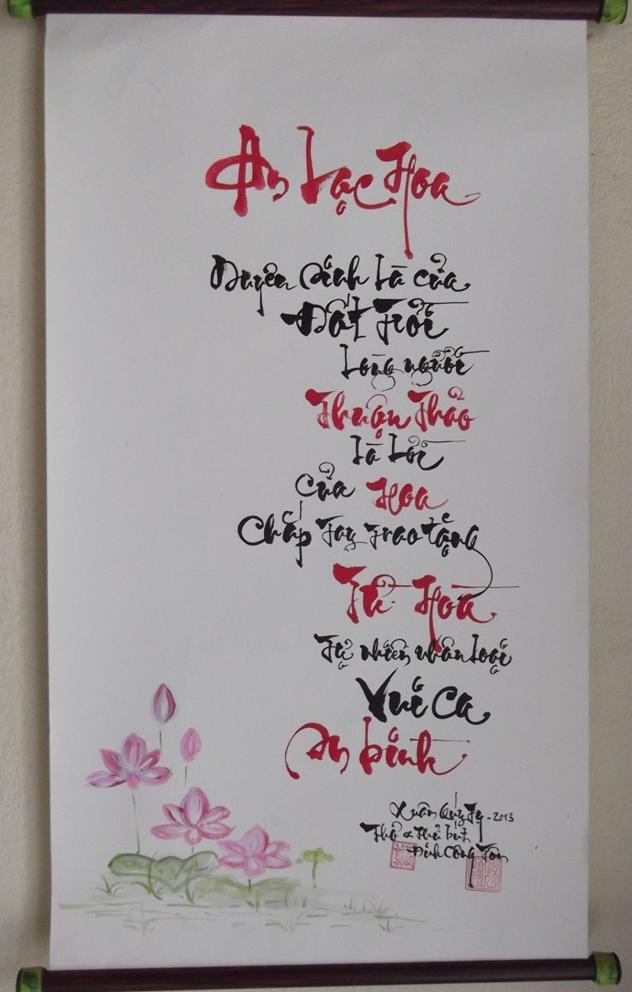 An Lạc Hoa
Duyên sinh là của
Đất Trời
Lòng người
Thuận Thảo
là lời
của Hoa
Chắp Tay trao tặng
Từ Hòa
Tự nhiên nhân loại
Vui Ca
An bình
Xuân Quý Tỵ - 2013
Thơ & Thủ bút
Đinh Công Tôn